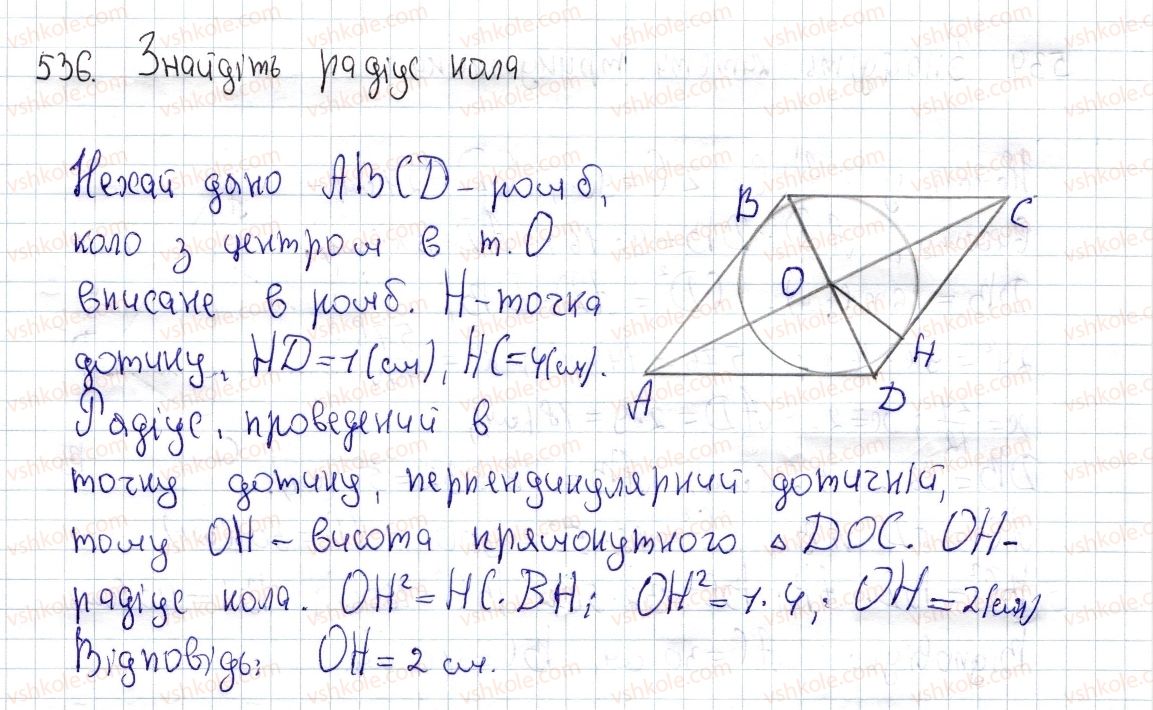 536. Знайдіть радіус кола
Нехай дано ABCD - ромб,
коло з центром в т. О
вписане в ромб. H - точка
дотику, HD = 1 (см), HC = 4 (см).
Радіус, проведений в
точку дотику, перпендикулярний дотичній,
тому OH - висота прямокутного △ DOC. OH -
радіус кола. OH² = HC · BH; OH² = 1 · 4; OH = 2 (см)
Відповідь: OH = 2 см.
B
C
O
H
A
D